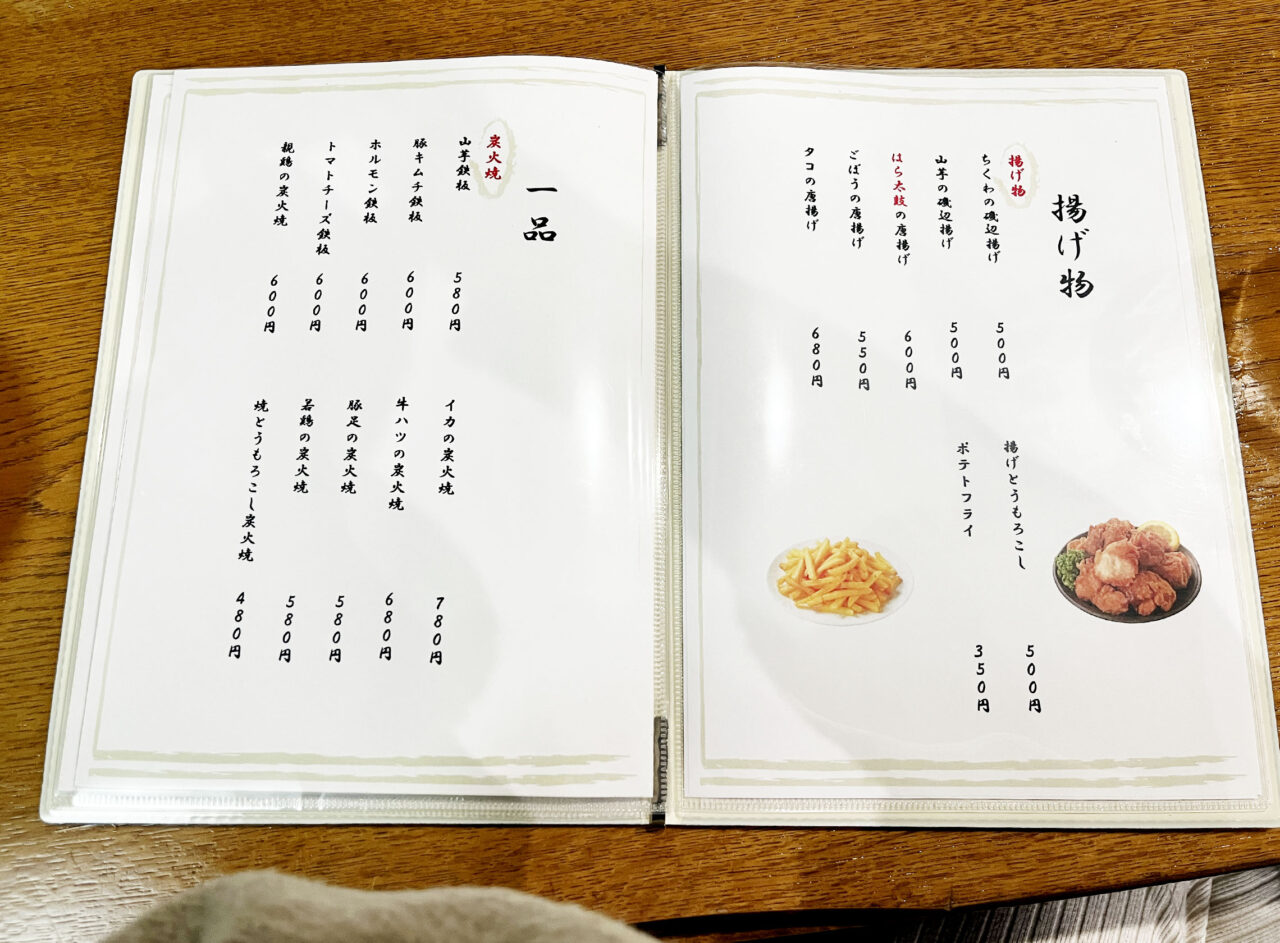 揚げ物
揚げ物
ちくわの磯辺揚げ 500円
山芋の磯辺揚げ 500円
はら太鼓の唐揚げ 600円
ごぼうの唐揚げ 550円
タコの唐揚げ 680円
揚げとうもろこし 500円
ポテトフライ 350円
一品
炭火焼
山芋鉄板 580円
豚キムチ鉄板 600円
ホルモン鉄板 600円
トマトチーズ鉄板 600円
親鶏の炭火焼 600円
イカの炭火焼 780円
牛ハツの炭火焼 680円
豚足の炭火焼 580円
若鶏の炭火焼 580円
焼とうもろこし炭火焼 480円